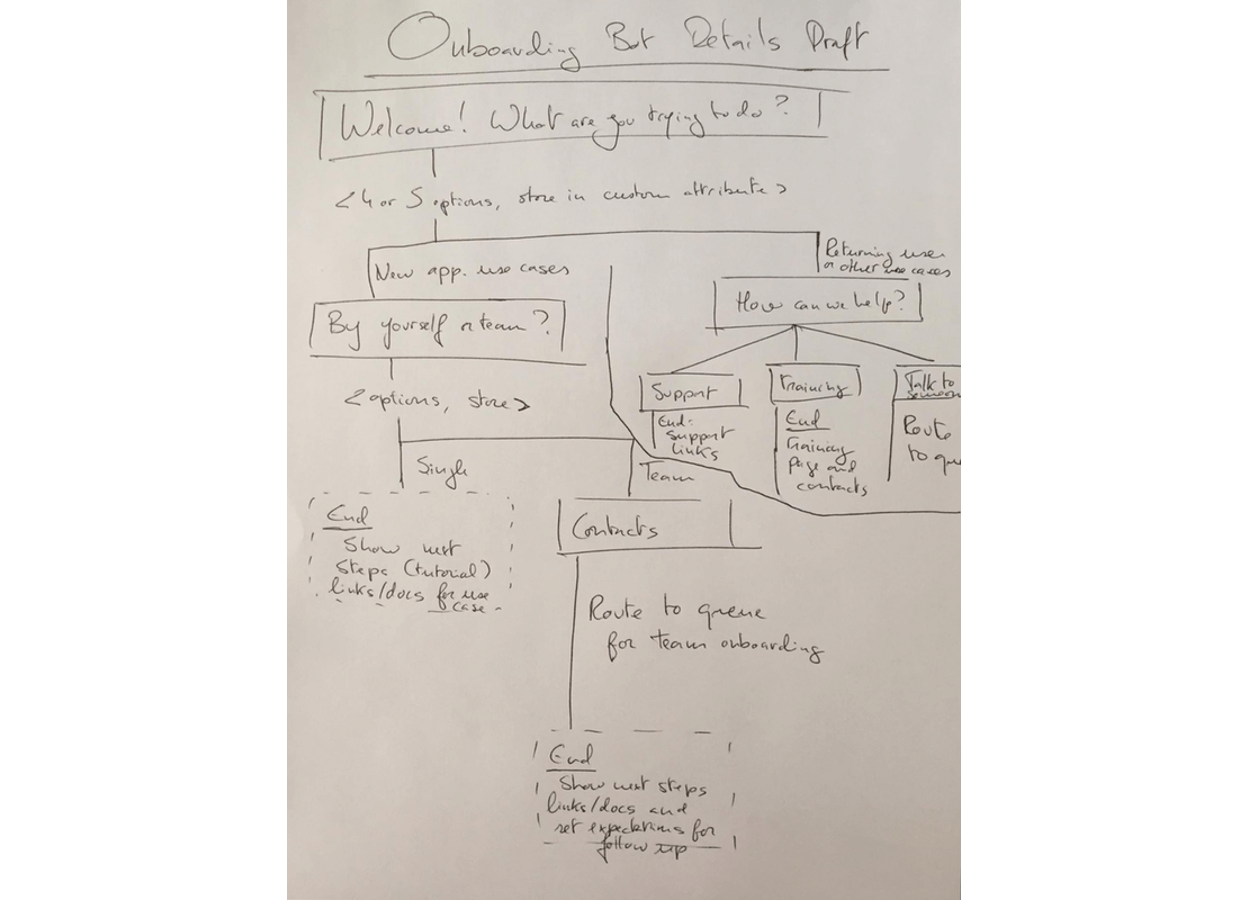 Onboarding Bot Details Draft
Welcome! What are you trying to do?
<4 or 5 options, store in custom attribute>
New app. use cases
Returning user
or other use cases
By yourself or team?
How can we help?
<options, store>
Support
Training
Talk to
someon
End:
support
links
End
Training
page and
contacts
Route
to qu
Single
Team
End
Show next
steps (tutorial)
links/docs for use
case
Contacts
Route to queue
for team onboarding
End
Show next steps
links/docs and
set expectations for
follow up